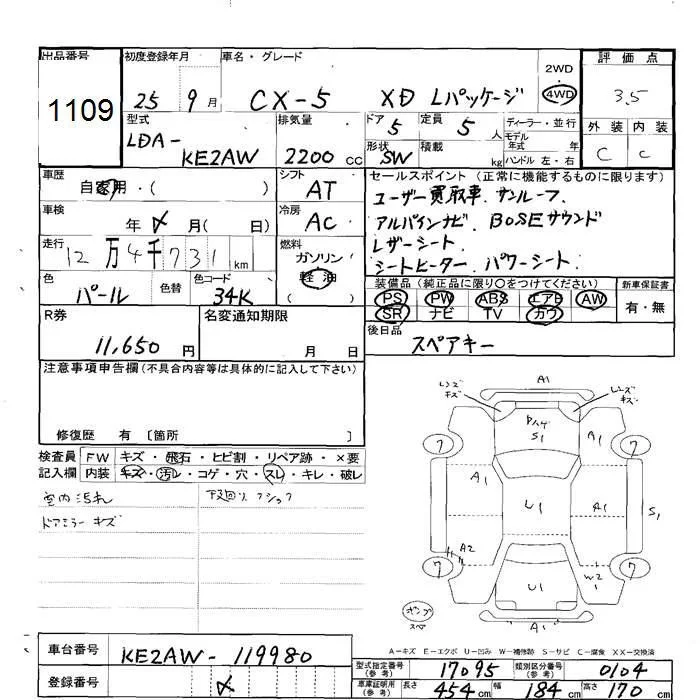 出品番号 初度登録年月 車名・グレード 2WD 評価点
1109 25年 9月 CX-5 XD Lパッケージ 4WD 3.5
型式 排気量 ドア 定員 ディーラー・並行 外装 内装
LDA-KE2AW 2200cc 5 5人 モデル年式 年 C C
形状 SW 積載 kg ハンドル 左・右
車歴 自家用・( ) シフト AT セールスポイント (正常に機能するものに限ります)
ユーザー買取車、サンルーフ
車検 年 月( 日) 冷房 AC アルパインナビ、BOSEサウンド
走行 12万4千731km 燃料 ガソリン 軽油 ( ) レザーシート、
シートヒーター、パワーシート、
色 パール 色替 色コード 34K 装備品 (純正品に限り○をつけてください) 新車保証書
PS PW ABS エアB AW 有・無
SR ナビ TV カワ
R券 11,650円 名変通知期限 月 日 後日品 スペアキー
注意事項申告欄 (不具合内容等は具体的に記入して下さい)
修復歴 有 [箇所 ]
検査員記入欄 FW キズ・飛石・ヒビ割・リペア跡・×要
内装 キズ・汚レ・コゲ・穴・スレ・キレ・破レ
室内汚れ
ドアミラーキズ
レンズキズ A1 レンズキズ
S1 A1
A1 U1 A1 S1
A2 W2
U1
A1
A-キズ E-エクボ U-凹み W-補修跡 S-サビ C-腐食 XX-交換済
車台番号 KE2AW-119980
登録番号
型式指定番号(参考) 17095 類別区分番号(参考) 0104
車庫証明用(参考) 長さ 454cm 幅 184cm 高さ 170cm